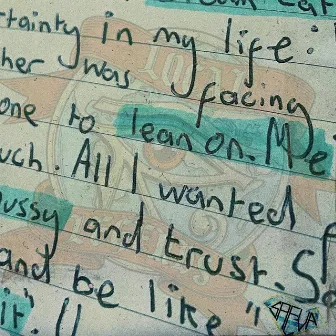 rtainty in my life:
her was facing
one to lean on. Me
uch. All I wanted
ussy and trust. S
and be like "I
it".